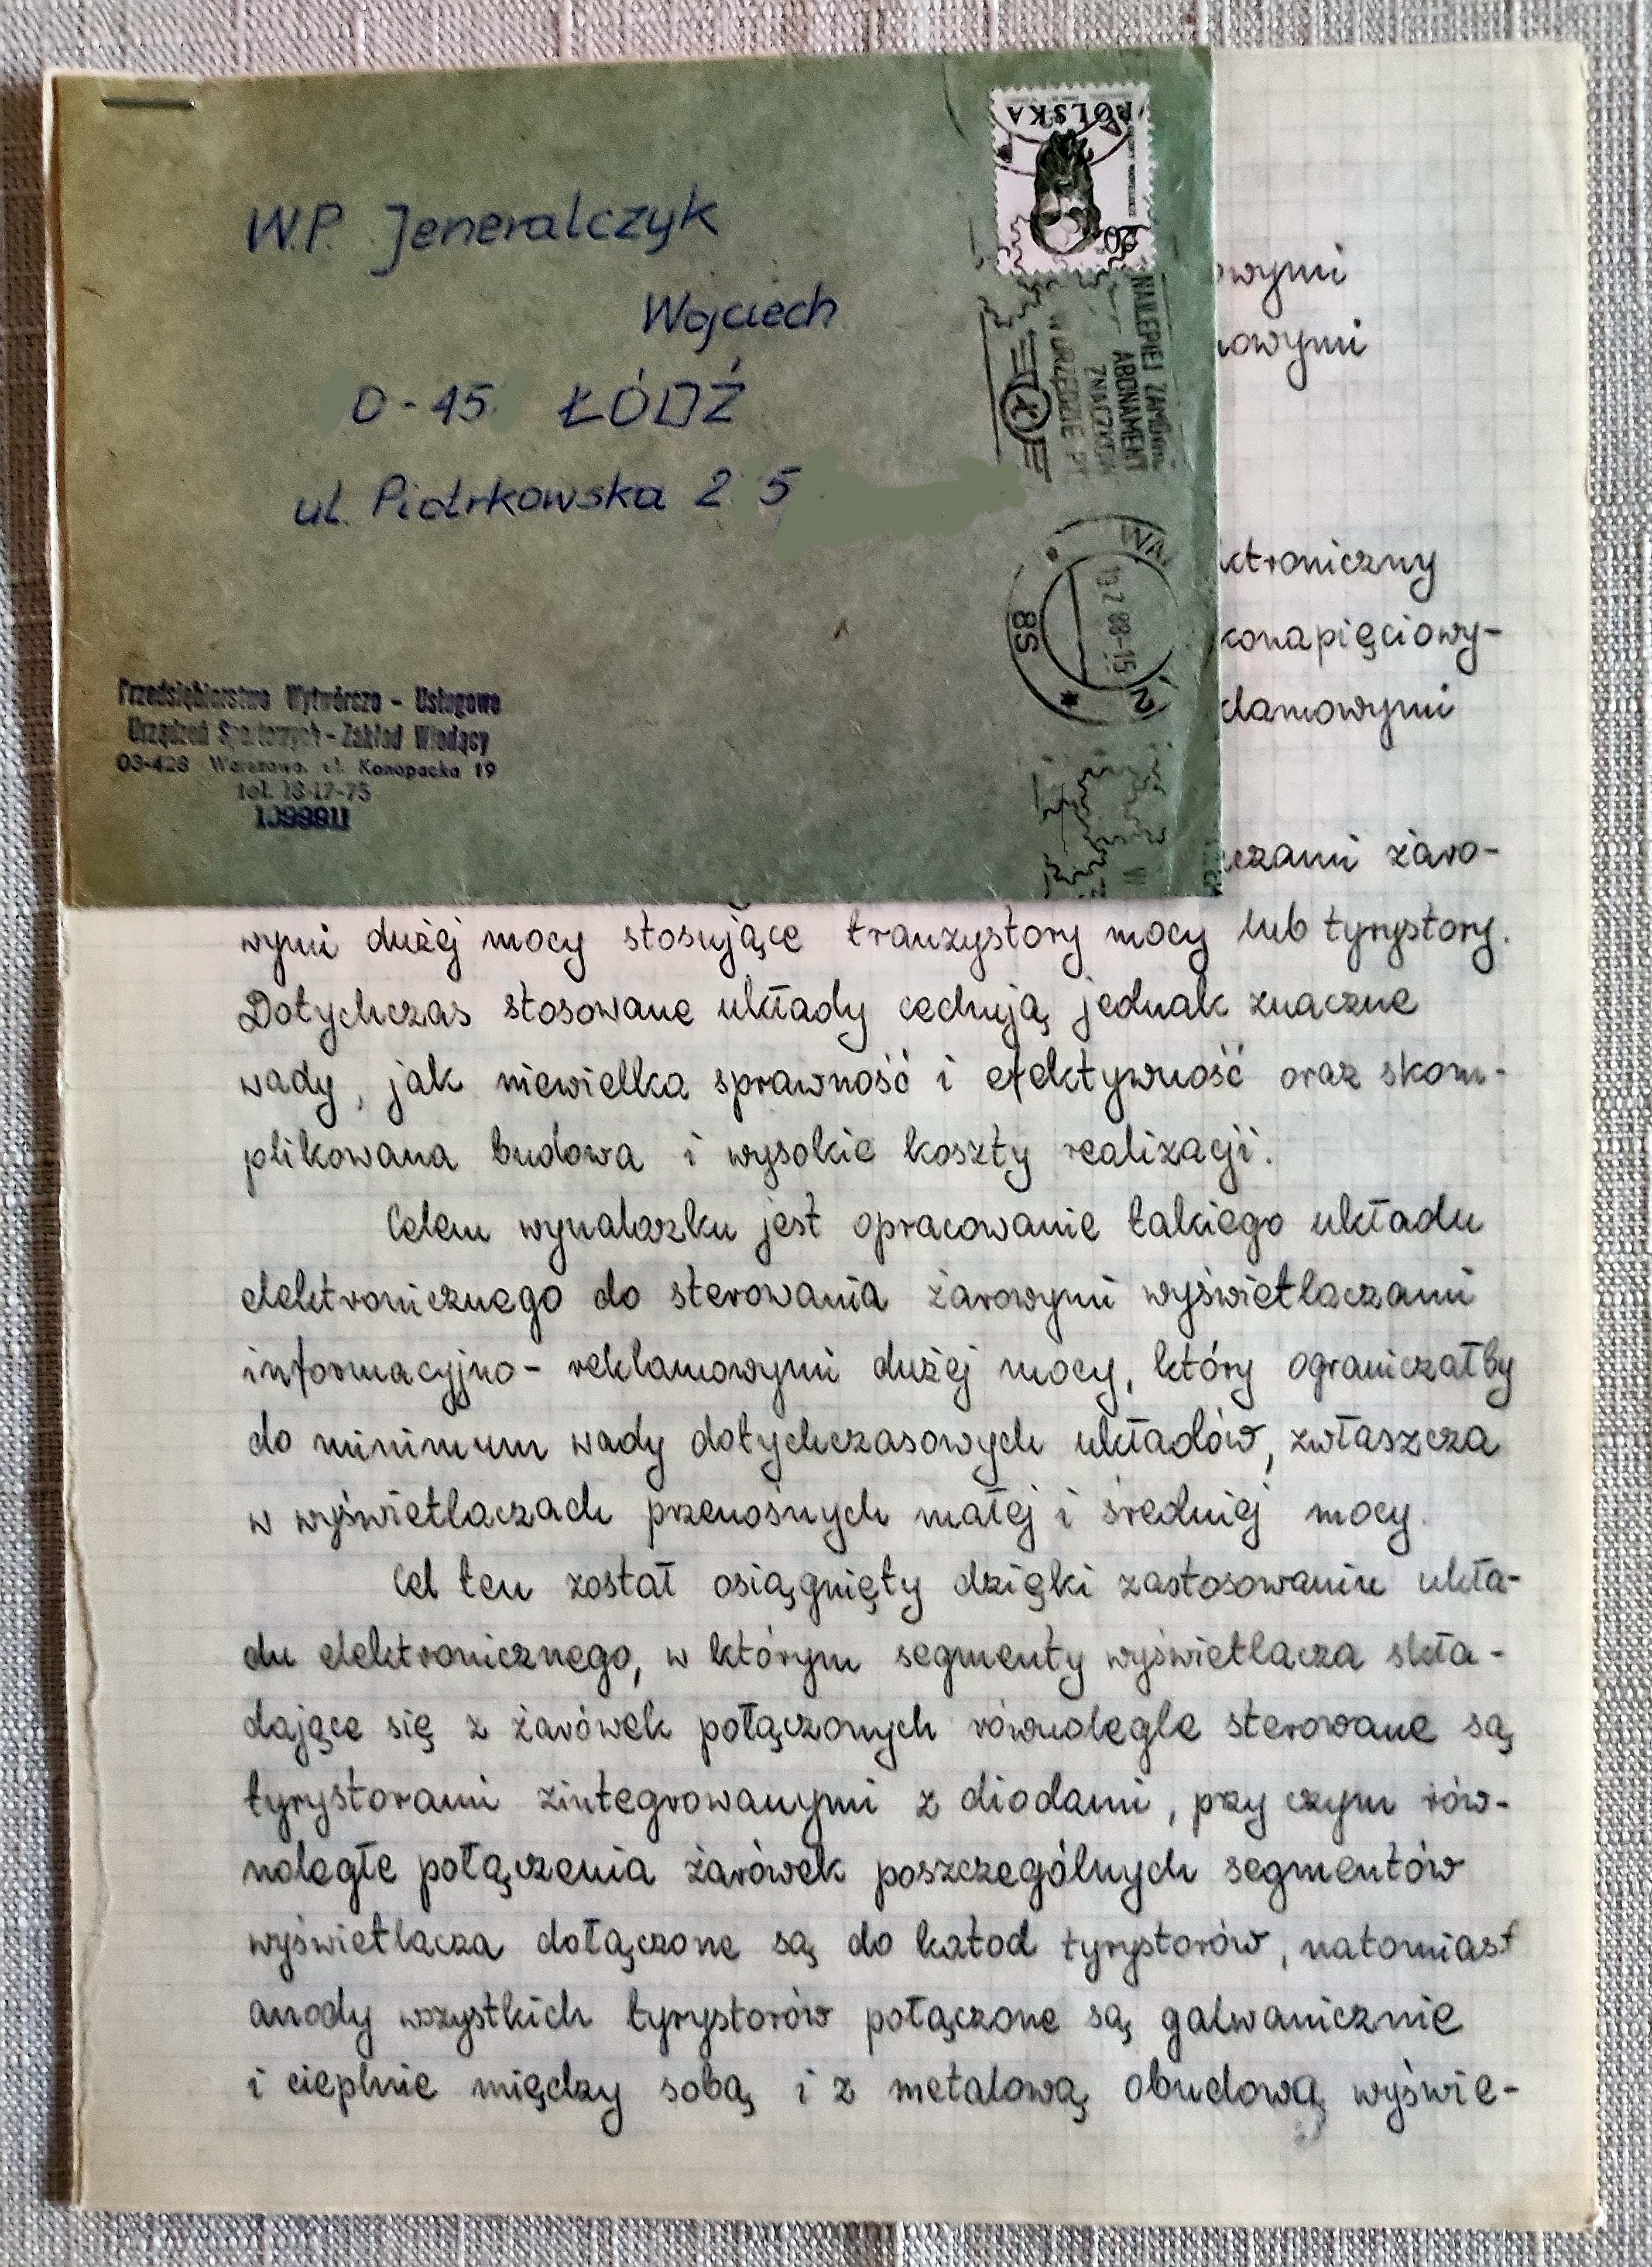 W.P. Jeneralczyk
Wojciech
0-45 ŁÓDŹ
ul. Piotrkowska 2 5
POLSKA
20
NAJLEPIEJ ZAMÓW
ABONAMENT
ZNACZKÓW
W URZĘDZIE PT
WA
19.2 88-15
8S
Przedsiębiorstwo Wytwórczo - Usługowe
Urządzeń Sportowych - Zakład Wiodący
03-428 Warszawa, ul. Konopacka 19
tel. 18-17-75
owymi
owymi
ktroniczny
konapięciowy-
klamowymi
czami żaro-
wymi dużej mocy stosujące tranzystory mocy lub tyrystory.
Dotychczas stosowane układy cechują jednak znaczne
wady, jak niewielka sprawność i efektywność oraz skom-
plikowana budowa i wysokie koszty realizacji.
Celem wynalazku jest opracowanie takiego układu
elektronicznego do sterowania żarowymi wyświetlaczami
informacyjno - reklamowymi dużej mocy, który ograniczałby
do minimum wady dotychczasowych układów, zwłaszcza
w wyświetlaczach przenośnych małej i średniej mocy.
Cel ten został osiągnięty dzięki zastosowaniu ukła-
du elektronicznego, w którym segmenty wyświetlacza skła-
dające się z żarówek połączonych równolegle sterowane są
tyrystorami zintegrowanymi z diodami, przy czym rów-
noległe połączenia żarówek poszczególnych segmentów
wyświetlacza dołączone są do katod tyrystorów, natomiast
anody wszystkich tyrystorów połączone są galwanicznie
i cieplnie między sobą i z metalową obudową wyświe-